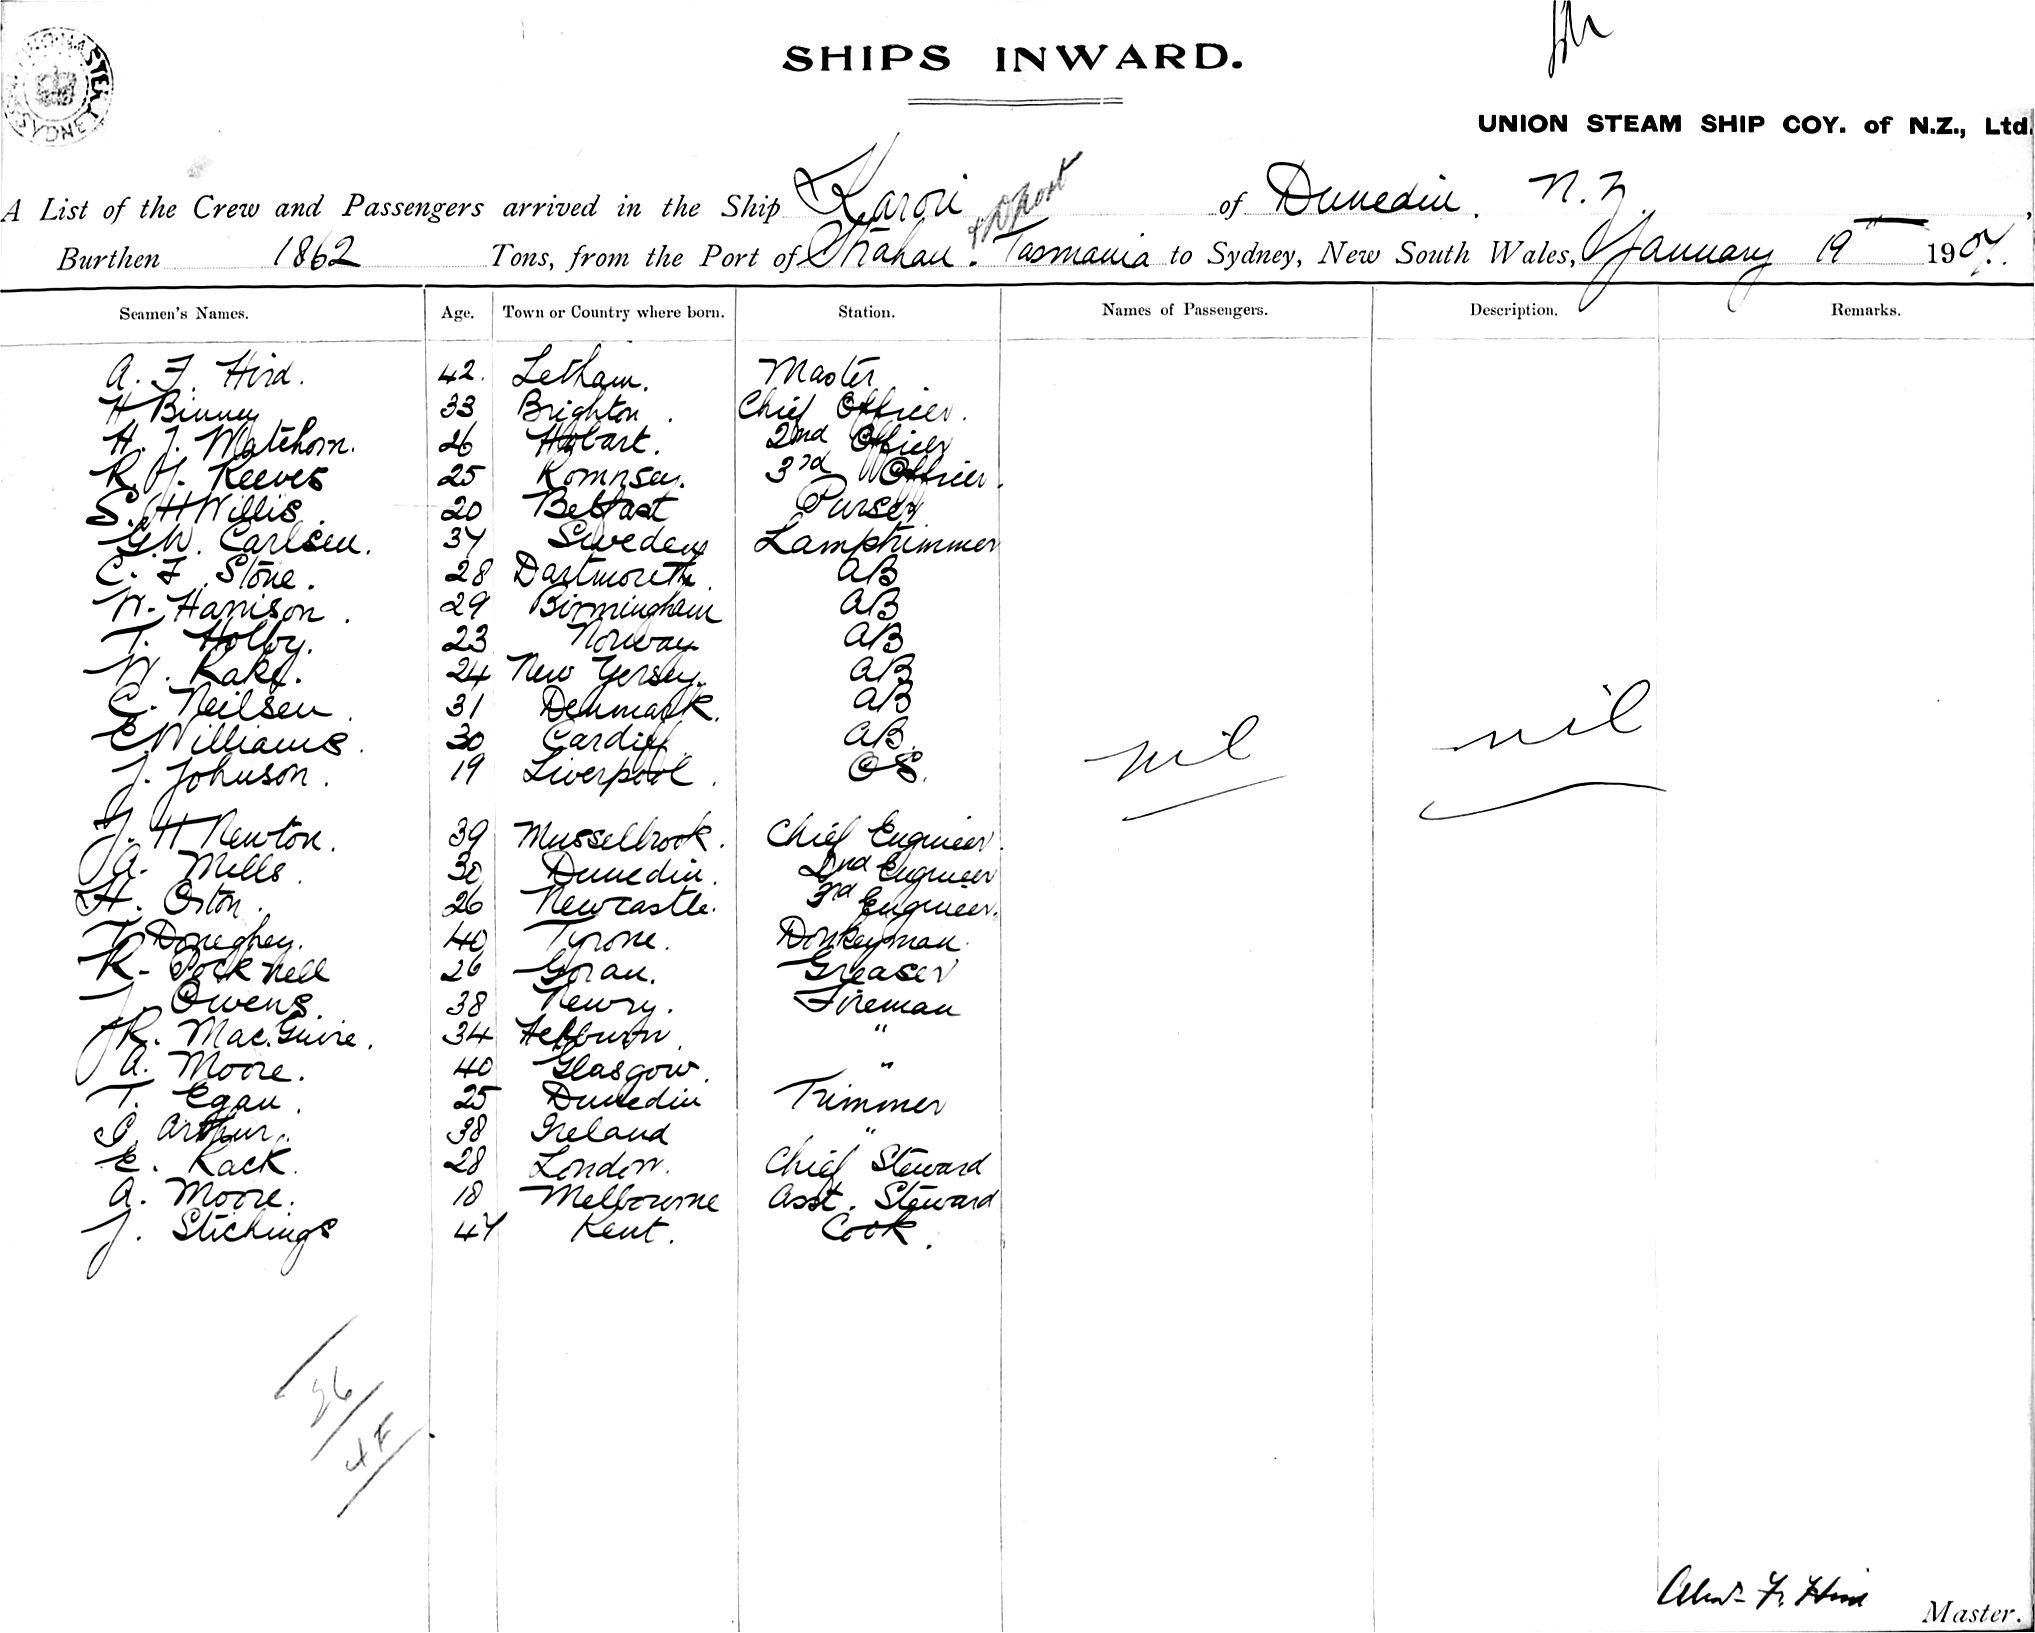 SHIPPING MASTER SYDNEY
SHIPS INWARD.
UNION STEAM SHIP COY. of N.Z., Ltd.
A List of the Crew and Passengers arrived in the Ship Karori of Dunedin. N.Z.,
Burthen 1862 Tons, from the Port of Strahan & D'Port. Tasmania to Sydney, New South Wales, January 19th 1907.
Seamen's Names. Age. Town or Country where born. Station. Names of Passengers. Description. Remarks.
A. F. Hird. 42. Letham. Master
H Binney 33 Brighton. Chief Officer.
H. J. Matehorn. 26 Hobart. 2nd Officer
R. H. Reeves 25 Romnsey. 3rd Officer.
S. H Willis. 20 Belfast Purser
G. W. Carlsen. 37 Sweden Lamptrimmer
C. F. Stone. 28 Dartmouth. AB
W. Harrison. 29 Birmingham AB
T. Holby. 23 Norway AB
W. Rake. 24 New Yersey. AB
C. Neilsen. 31 Denmark. AB
E Williams. 30 Cardiff. AB.
J. Johnson. 19 Liverpool. OS.
nil nil
J. H Newton. 39 Musselbrook. Chief Engineer.
A. Mills. 30 Dunedin. 2nd Engineer
H. Orton. 26 Newcastle. 3rd Engineer.
T. Doneghey. 40 Tyrone. Donkeyman.
R. Pocknell 26 Goran. Greaser
J. Owens. 38 Newry. Fireman
R. MacGuire. 34 Hepburn. "
A. Moore. 40 Glasgow. "
T. Egan. 25 Dunedin Trimmer
Arthur. 38 Ireland "
E. Rack. 28 London. Chief Steward
A. Moore. 18 Melbourne Asst. Steward
J. Stichings 47 Kent. Cook.
26
4F
Alexr F. Hird
Master.